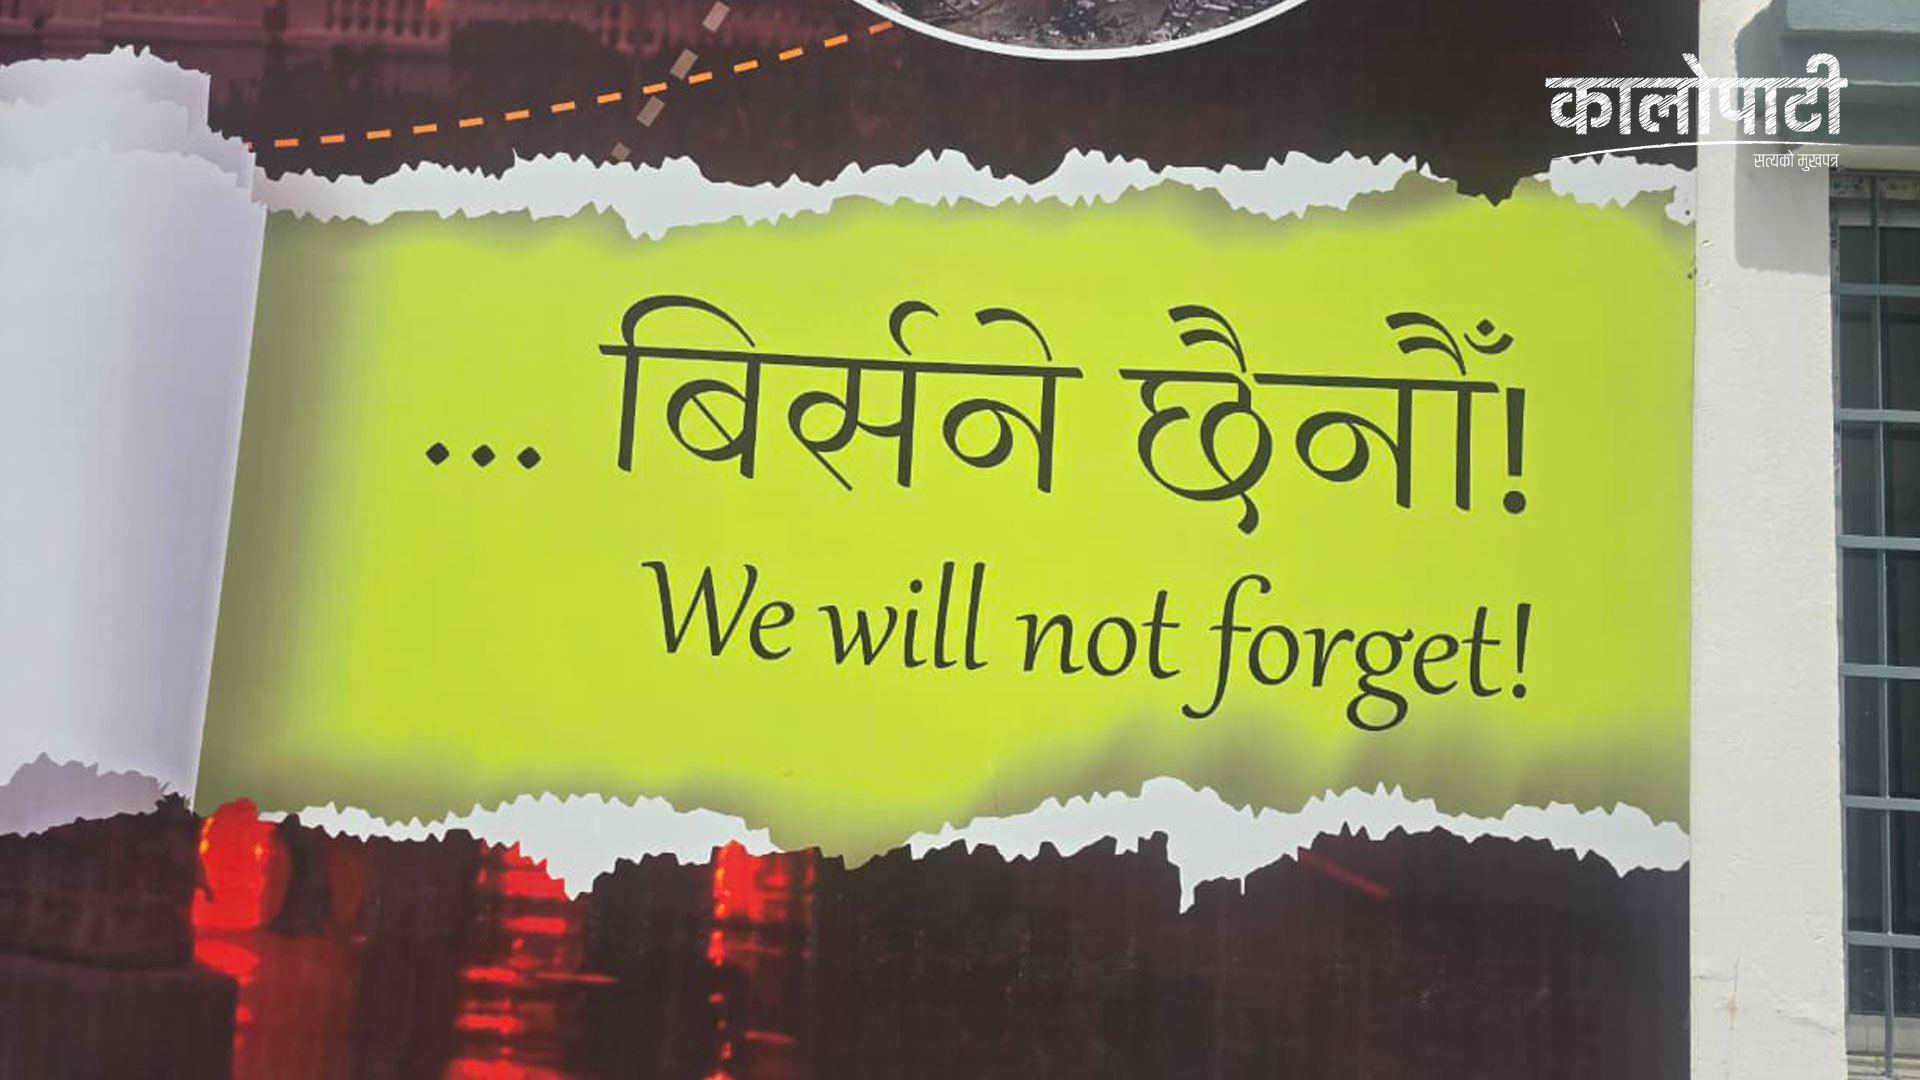 कालोपाटी
सत्यको मुखपत्र
... बिर्सने छैनौँ!
We will not forget!